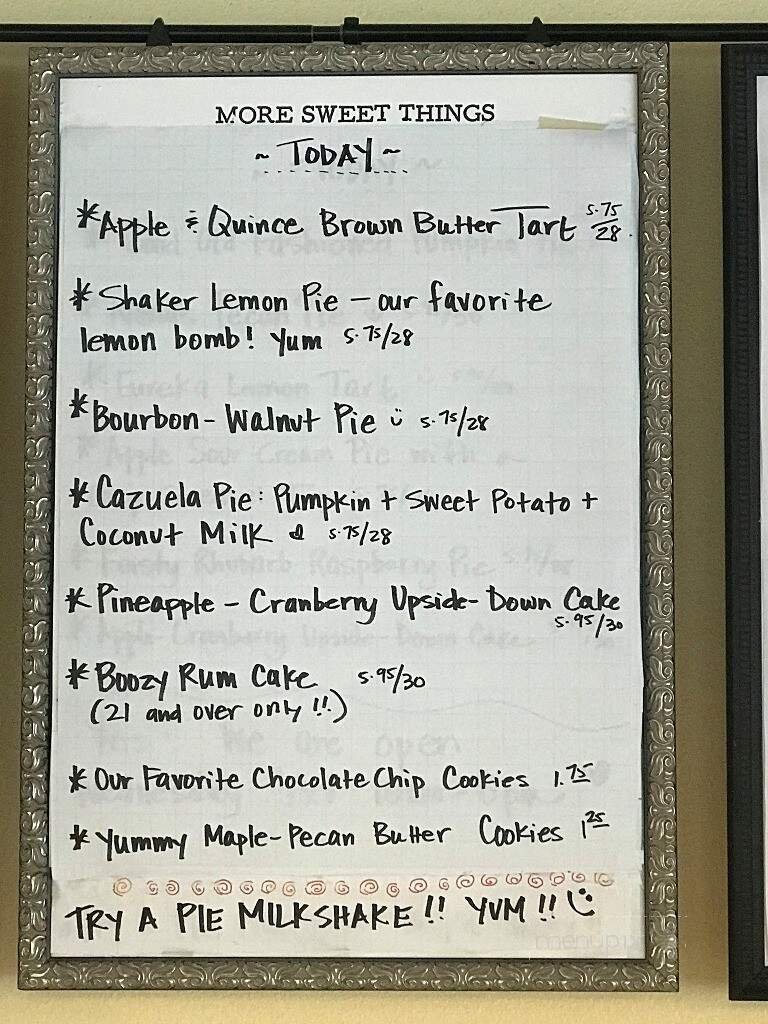 MORE SWEET THINGS
~ TODAY ~
*Apple & Quince Brown Butter Tart 5.75/28.
*Shaker Lemon Pie - our favorite
lemon bomb! Yum 5.75/28
*Bourbon-Walnut Pie 5.75/28
*Cazuela Pie: Pumpkin + Sweet Potato +
Coconut Milk 5.75/28
*Pineapple - Cranberry Upside-Down Cake
5.95/30
*Boozy Rum Cake 5.95/30
(21 and over only !!)
*Our Favorite Chocolate Chip Cookies 1.75
*Yummy Maple-Pecan Butter Cookies 1.25
TRY A PIE MILKSHAKE!! YUM!!